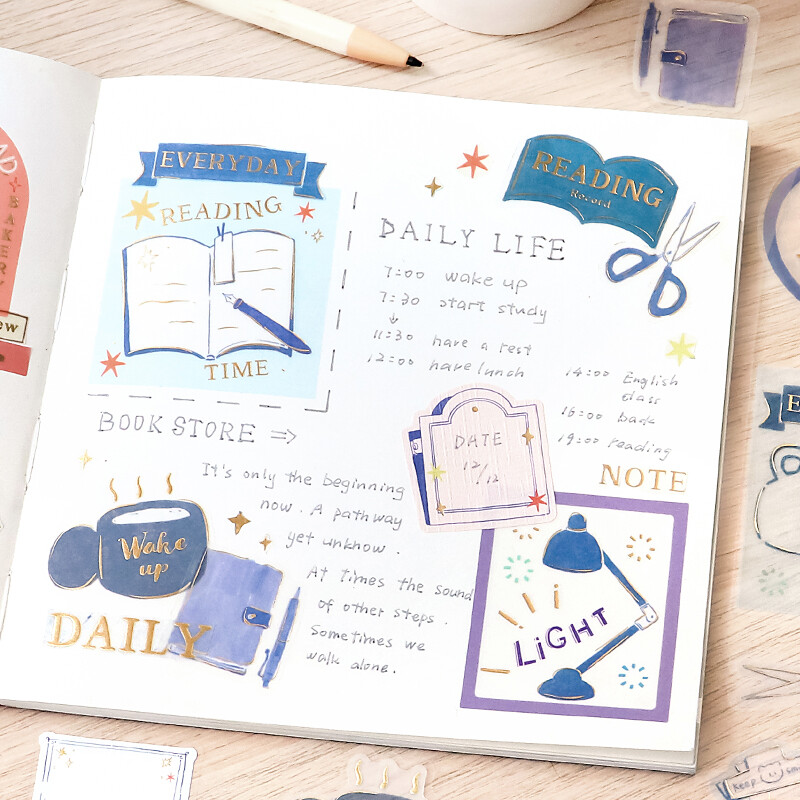 EVERYDAY
READING
TIME
READING
Record
DAILY LIFE
7:00 wake up
7:30 start study
↓
11:30 have a rest
12:00 have lunch
14:00 English
class
16:00 back
19:00 reading
BOOK STORE ⇒
It's only the beginning
now. A pathway
yet unknow.
At times the sound
of other steps.
Sometimes we
walk alone.
DATE
12/12
NOTE
LiGHT
Wake
up
DAILY
BAKERY
Keep